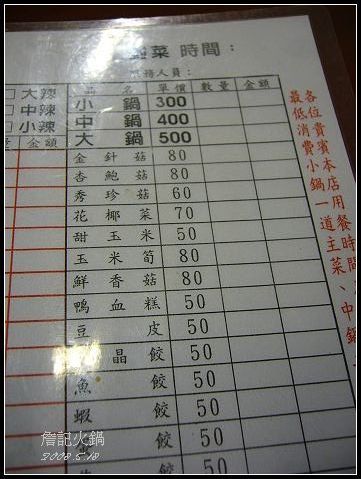 菜 時間：
務人員：
大辣
中辣
小辣
金額
品 名 單價 數量 金額
小鍋 300
中鍋 400
大鍋 500
金針菇 80
杏鮑菇 80
秀珍菇 60
花椰菜 70
甜玉米 50
玉米筍 80
鮮香菇 80
鴨血糕 50
豆皮 50
晶餃 50
魚餃 50
蝦餃 50
餃 50
50
各位貴賓本店用餐時間
最低消費小鍋一道主菜、中鍋
詹記火鍋
2008.5.10